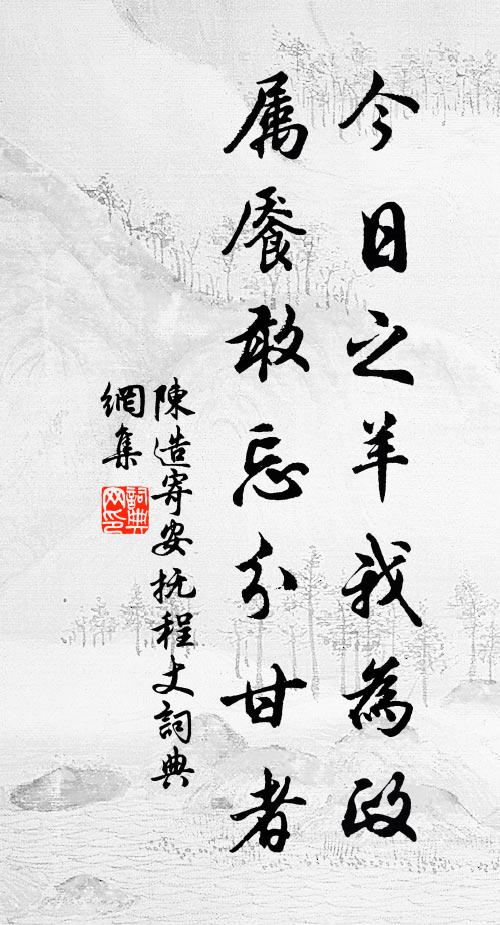 今日之羊我為政
属饜敢忘分甘者
陳造寄安抚程丈詞典
網集
詞典
网印